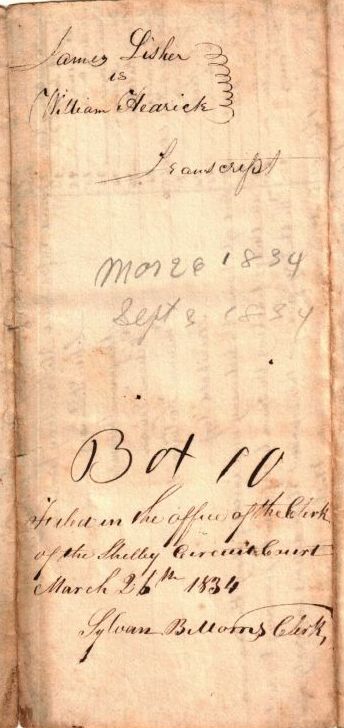 James Lisher
vs
William Hedrick
Transcript
Mar 26 1834
Sept 3 1834
Box 10
Filed in the office of the Clerk
of the Shelby Circuit Court
March 26th 1834
Sylvan B Morris Clerk,